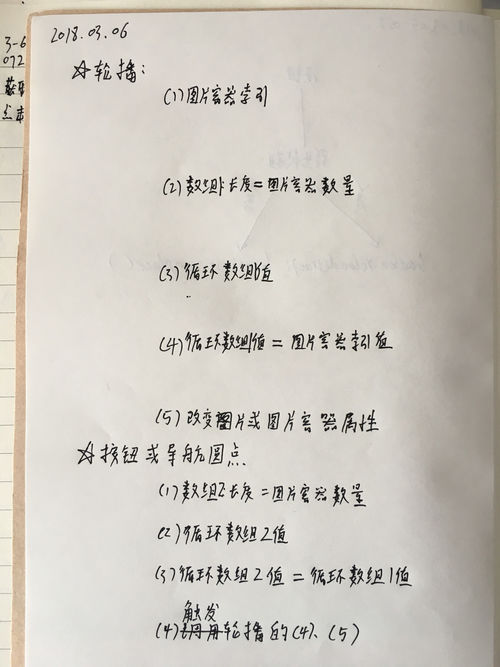 2018.03.06
3-6
072
☆轮播:
(1)图片容器索引
(2)数组1长度=图片容器数量
(3)循环数组1值
(4)循环数组1值=图片容器索引值
(5)改变图片或图片容器属性
☆按钮或导航圆点
(1)数组2长度=图片容器数量
(2)循环数组2值
(3)循环数组2值=循环数组1值
触发
(4)轮播的(4)、(5)